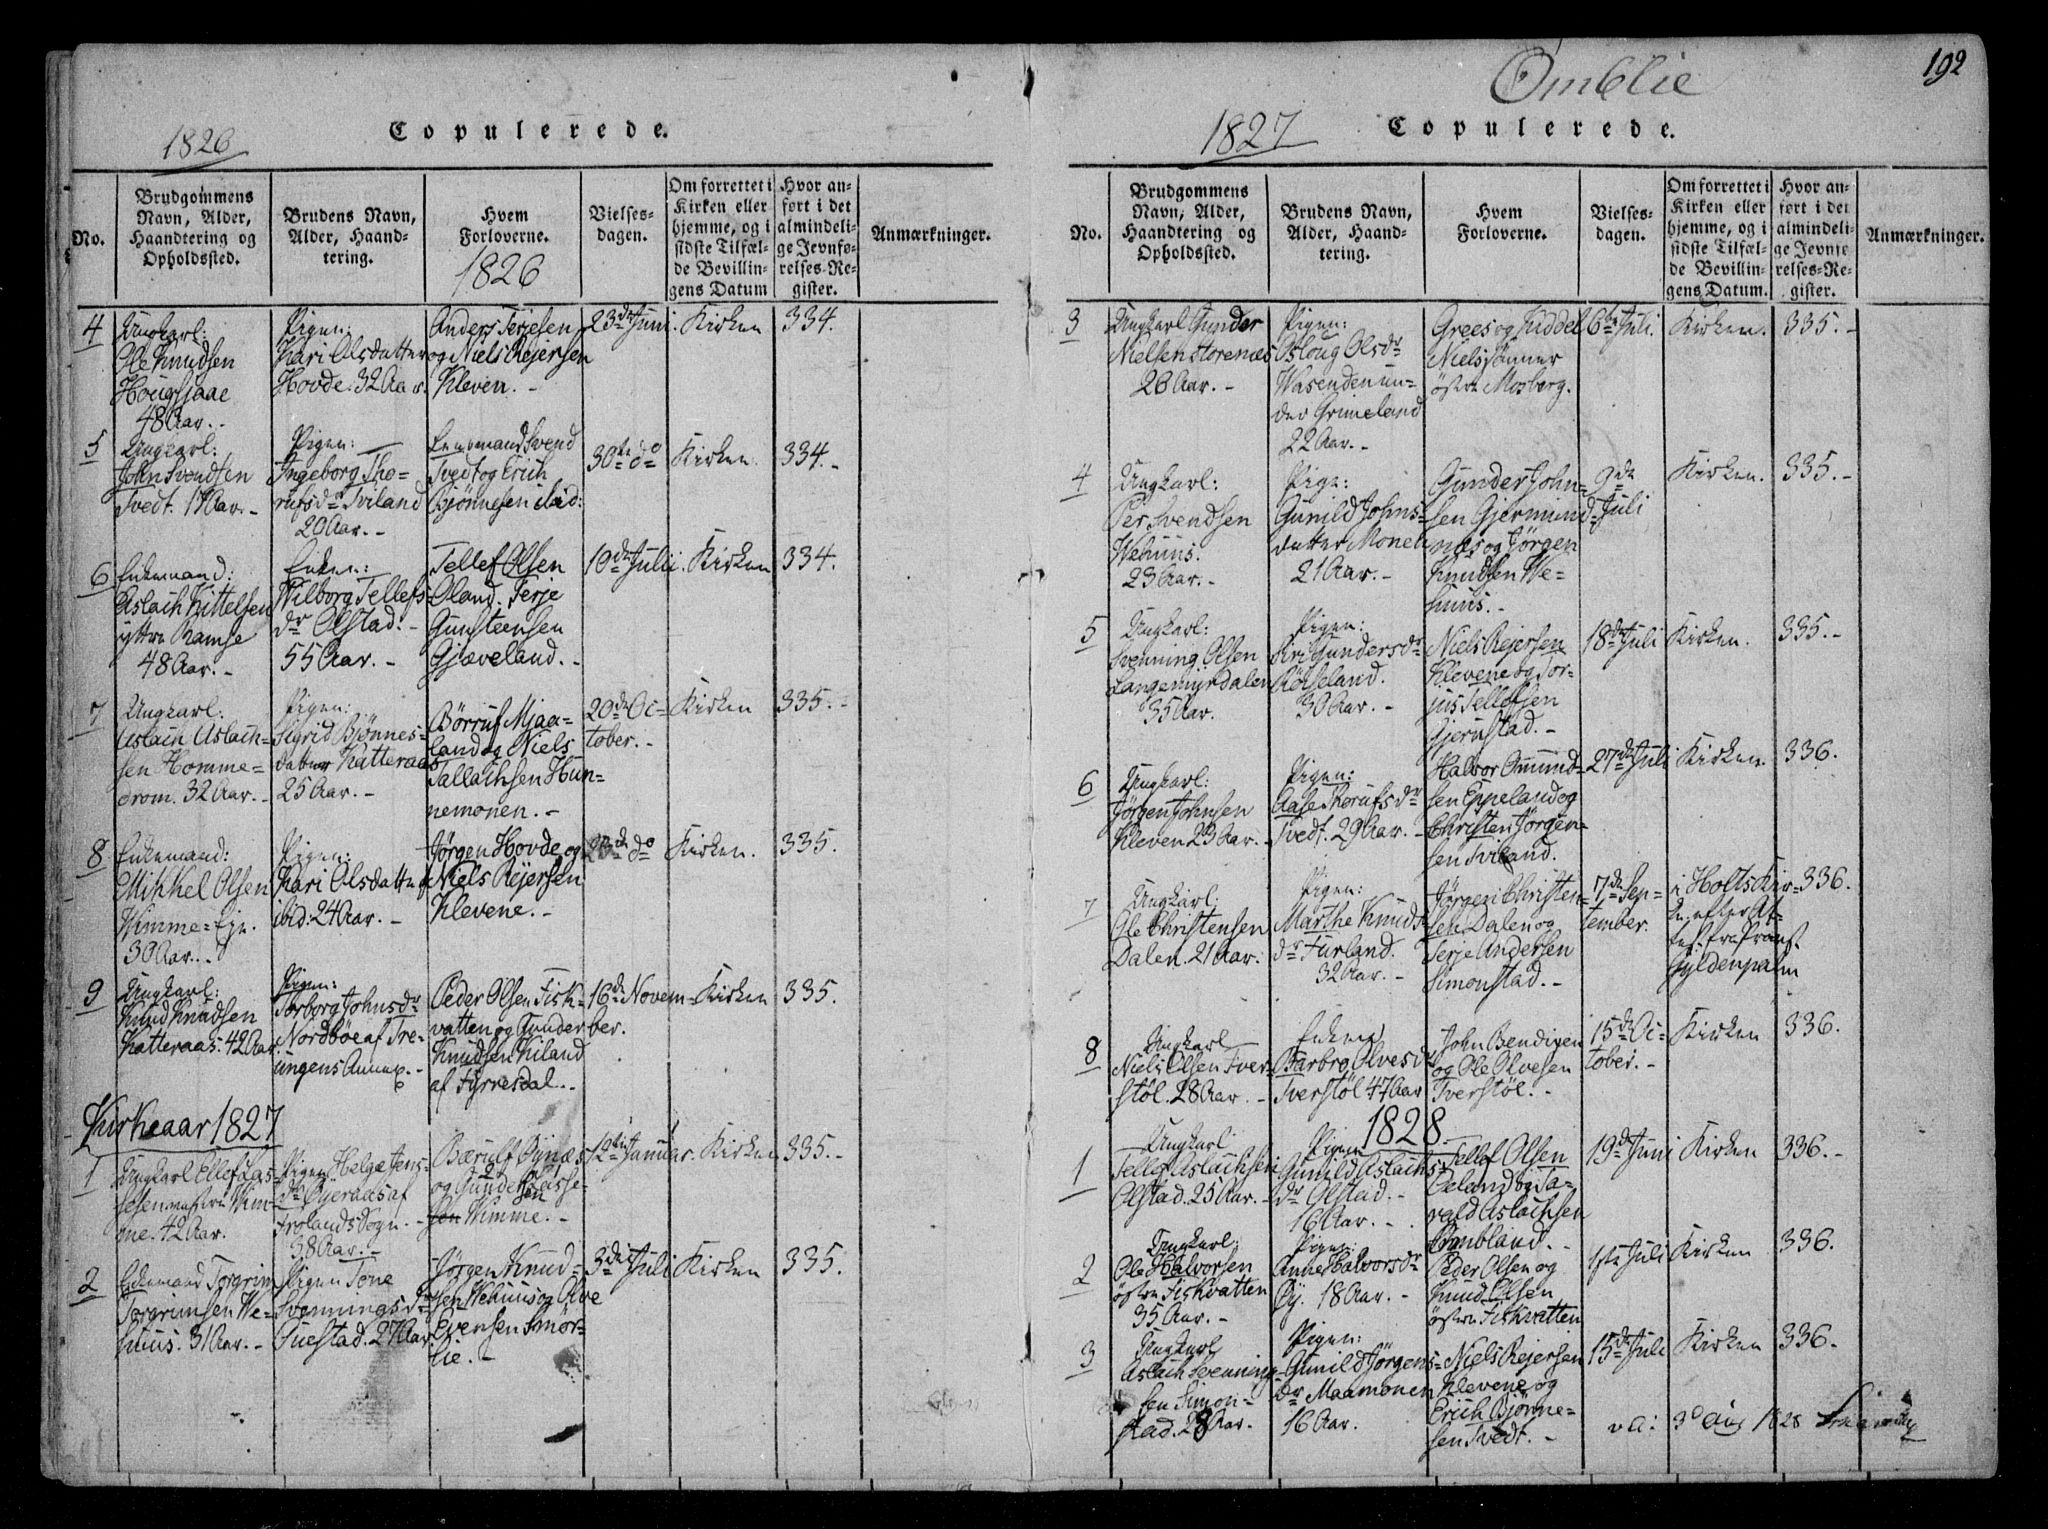 1826
Copulerede.
No.
Brudgommens
Navn, Alder,
Haandtering og
Opholdssted.
Brudens Navn,
Alder, Haand-
tering.
Hvem
Forloverne.
1826
Vielses-
dagen.
Om forrettet i
Kirken eller
hjemme, og i
sidste Tilfæl-
de Bevillin-
gens Datum
Hvor an-
ført i det
almindeli-
ge Jevnfø-
relses-Re-
gister.
Anmærkninger.
4
Ungkarl:
Ole Knudsen
Hougsjaae
48 Aar. -
Pigen:
Kari Olsdatter
Hovde. 32 Aar.
Anders Terjesen
og Niels Rejersen
Kleven. -
23de Juni.
Kirken
334.
5
Ungkarl:
John Svendsen
Tvedt. 17 Aar. -
Pigen:
Ingeborg Tho-
rufsdr Tviland
20 Aar. -
Lensmand Svend
Tvedt og Erich
Bjønnesen ibid:
30te do
Kirken.
334. -
6
Enkemand:
Aslach Kittelsen
yttre Ramse
48 Aar. -
Enken:
Wilborg Tellefs-
dr Olstad. -
55 Aar. -
Tellef Olsen
Oland. Terje
Gunsteensen
Gjæveland. -
10de Julii.
Kirken
334.
7
Ungkarl:
Aslach Aslach-
sen Homme-
drom. 32 Aar. -
Pigen:
Sigrid Bjønnes-
datter Katteraas
25 Aar. -
Børruf Mjaa-
land og Niels
Tallachsen Hun-
nemonen. -
20de Oc-
tober. -
Kirken
335. -
8
Enkemand:
Mikkel Olsen
Wimme-Eje.
30 Aar. -
Pigen:
Kari Olsdatter
ibid: 24 Aar. -
Jørgen Hovde og
Niels Rejersen
Klevene. -
do
Kirken.
335.
9
Ungkarl:
Knud Knudsen
Katteraas. 42 Aar.
Pigen:
Torborg Johnsdr
Nordbøe af Tre-
ungens Annex. -
Peder Olsen Fisk-
vatten og Gunder
Knudsen Kiland
af Fyrresdal. -
16de Novem-
ber.
Kirken
335.
Kirkeaar 1827
1
Ungkarl Ellef Las-
sesen nestre Wim-
me. 42 Aar.
Pigen Helge Jens-
dr Øjeraas af
Frolands Sogn. -
38 Aar. -
Bærulf Øynæs
og Gunder Lasse-
sen Wimme. -
12te Januar.
Kirken
335. -
2
Enkemand Torgrim
Torgrimsen We-
huus. 31 Aar. -
Pigen Tone
Svenningsdr
Tuestad. 27 Aar.
Jørgen Knud-
sen Wehuus og Olve
Evensen Smør-
lie. -
3de Juli
Kirken
335.
Omblie
192
1827
Copulerede.
No.
Brudgommens
Navn, Alder,
Haandtering og
Opholdssted.
Brudens Navn,
Alder, Haand-
tering.
Hvem
Forloverne.
Vielses-
dagen.
Om forrettet i
Kirken eller
hjemme, og i
sidste Tilfæl-
de Bevillin-
gens Datum.
Hvor an-
ført i det
almindeli-
ge Jevnfø-
relses-Re-
gister.
Anmærkninger.
3
Ungkarl Gunder
Nielsen Storenæs
26 Aar. -
Pigen:
Osloug Olsdr
Wasenden un-
der Grimeland
22 Aar. -
Grees og Fiddel
Nielssønner
østre Mosberg.
6te Juli.
Kirken.
335. -
4
Ungkarl:
Per Svendsen
Wehuus.
23 Aar. -
Pige:
Gunild Johns-
datter Monen
21 Aar. -
Gunder John-
sen Gjermund-
næs og Jørgen
Knudsen We-
huus. -
9de
Juli
Kirken.
335. -
5
Ungkarl:
Svenning Olsen
Langemyrdalen
35 Aar.
Pigen:
Siri Gundersdr
Røiseland.
30 Aar. -
Niels Rejersen
Klevene og Tor-
jus Tellefsen
Gjerustad. -
18de Juli
Kirken.
335. -
6
Ungkarl:
Jørgen Johnsen
Kleven 23 Aar. -
Pigen:
Aase Thorufsdr
Tvedt. 29 Aar. -
Halvor Omund-
sen Eppeland og
Christen Jørgen-
sen Tviland.
27de Juli
Kirken.
336.
7
Ungkarl:
Ole Christensen
Dalen. 21 Aar.
Pigen:
Marthe Knuds-
dr Furland.
32 Aar. -
Jørgen Christen-
sen Dalen og
Terje Andersen
Simonstad. -
7de Sep-
tember.
i Holts Kir-
ke efter At-
test fra Provst
Gyldenpalm
336.
8
Ungkarl
Niels Olsen Tver-
støl. 28 Aar. -
Enken
Barbro Olvesdr
Tverstøl 47 Aar
John Bendixen
og Ole Olvesen
Tverstøl. -
15de Oc-
tober. -
Kirken
336.
1828
1
Ungkarl
Tellef Aslachsen
Olstad. 25 Aar. -
Pigen
Gunild Aslachs-
dr Olstad. -
16 Aar. -
Tellef Olsen
Oeland og Ta-
rald Aslachsen
Ombland. -
19de Juni
Kirken
336. -
2
Ungkarl:
Ole Halvorsen
østre Fiskvatten
35 Aar. -
Pigen:
Anne Halvorsdr
Øy. 18 Aar. -
Peder Olsen og
Knud Olsen
østre Fiskvatten
1ste Juli
Kirken
336.
3
Ungkarl
Aslach Svenning-
sen Simon-
stad. 28 Aar.
Pigen:
Gunild Jørgens-
dr Maamonen
16 Aar.
Niels Rejersen
Klevene og
Erich Bjønne-
sen Tvedt. -
15de Juli
Kirken
336. -
3 Aug 1828